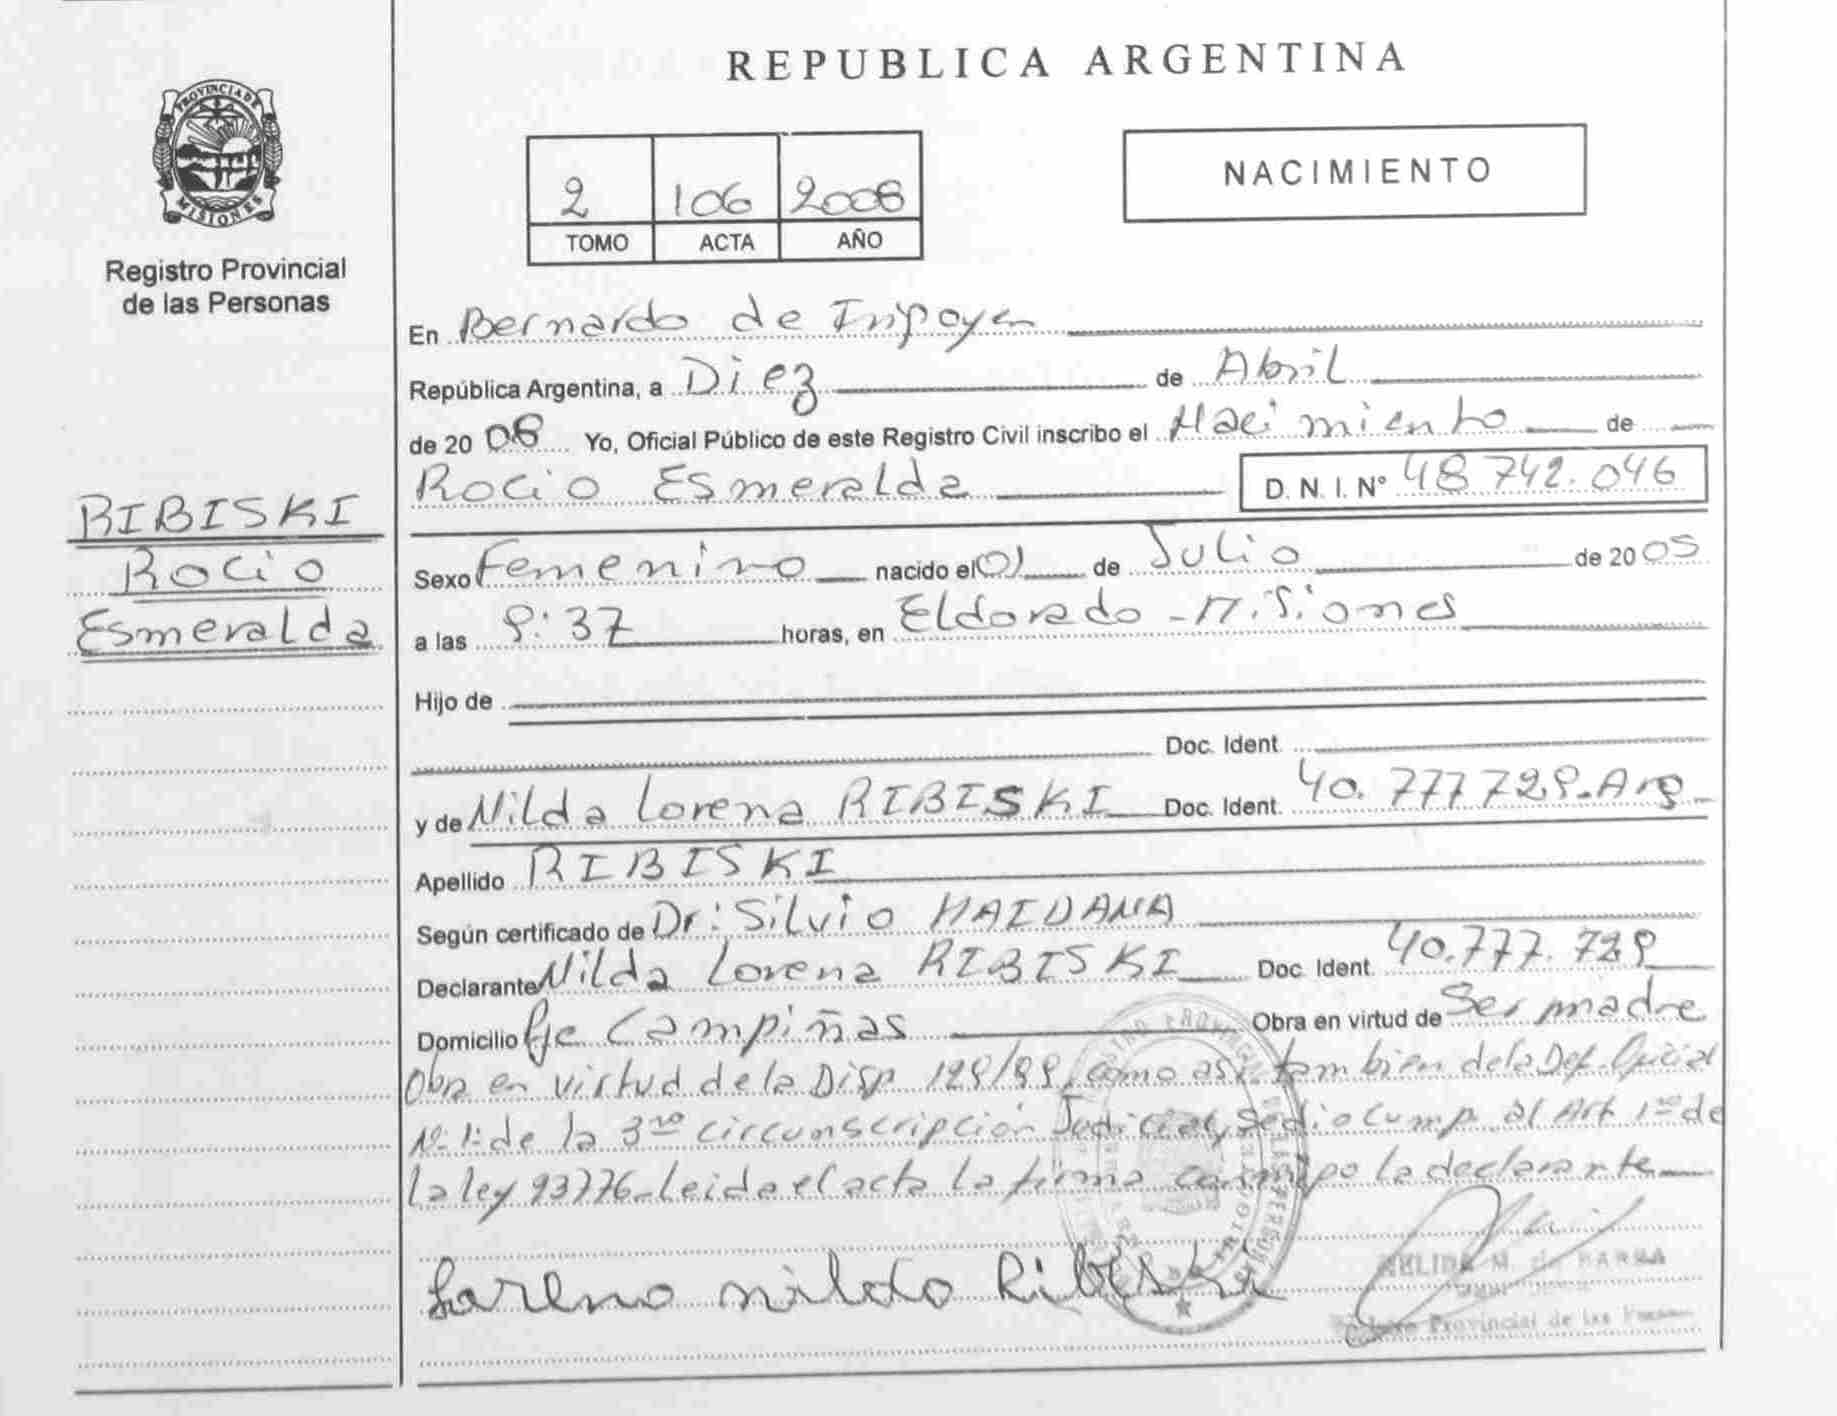 REPUBLICA ARGENTINA
PROVINCIA DE
MISIONES
Registro Provincial
de las Personas
NACIMIENTO
2 106 2008
TOMO ACTA AÑO
En Bernardo de Irigoyen
República Argentina, a Diez de Abril
de 20 08 Yo, Oficial Público de este Registro Civil inscribo el Nacimiento de
Rocio Esmeralda D. N. I. N° 48 742.046
RIBISKI
Rocio
Esmeralda
Sexo Femenino nacido el 01 de Julio de 20 05
a las 9:37 horas, en Eldorado - Misiones
Hijo de
Doc. Ident.
y de Nilda Lorena RIBISKI Doc. Ident. 40.777 729-Arg
Apellido RIBISKI
Según certificado de Dr: Silvio MAIDANA
Declarante Nilda Lorena RIBISKI Doc. Ident. 40.777.729
Domicilio Pje Campiñas Obra en virtud de Ser madre
Obra en virtud de la Disp 129/99, como asi tambien de la Def. Oficial
N° 1: de la 3ra circunscripción Judicial, Se dio cump. al Art 1ro de
la ley 23776- Leida el acta la firma conmigo la declarante
Lorena nilda Ribiski
NELIDA M. de BARRA
Provincial de las